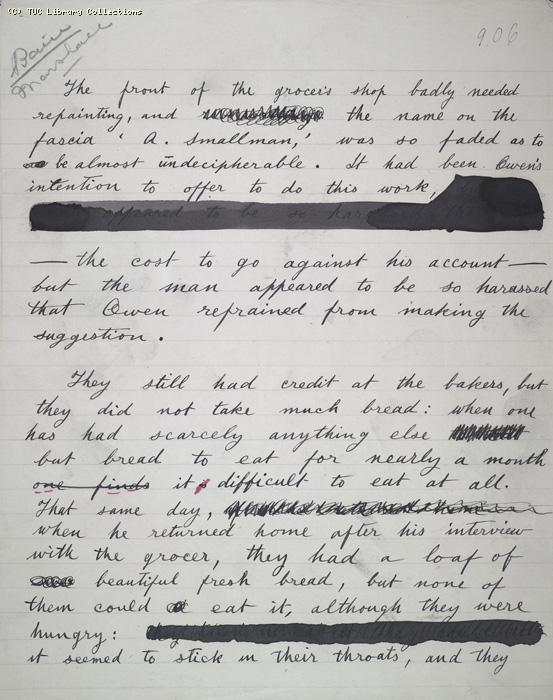 (C) TUC Library Collections
906
Bain
Marshall
The front of the grocer's shop badly needed
repainting, and the name on the
fascia ' A. Smallman,' was so faded as to
be almost undecipherable. It had been Owen's
intention to offer to do this work,
appeared to be so
— the cost to go against his account —
but the man appeared to be so harassed
that Owen refrained from making the
suggestion.
They still had credit at the bakers, but
they did not take much bread: when one
has had scarcely anything else
but bread to eat for nearly a month
one finds it difficult to eat at all.
That same day,
when he returned home after his interview
with the grocer, they had a loaf of
beautiful fresh bread, but none of
them could eat it, although they were
hungry:
it seemed to stick in their throats, and they